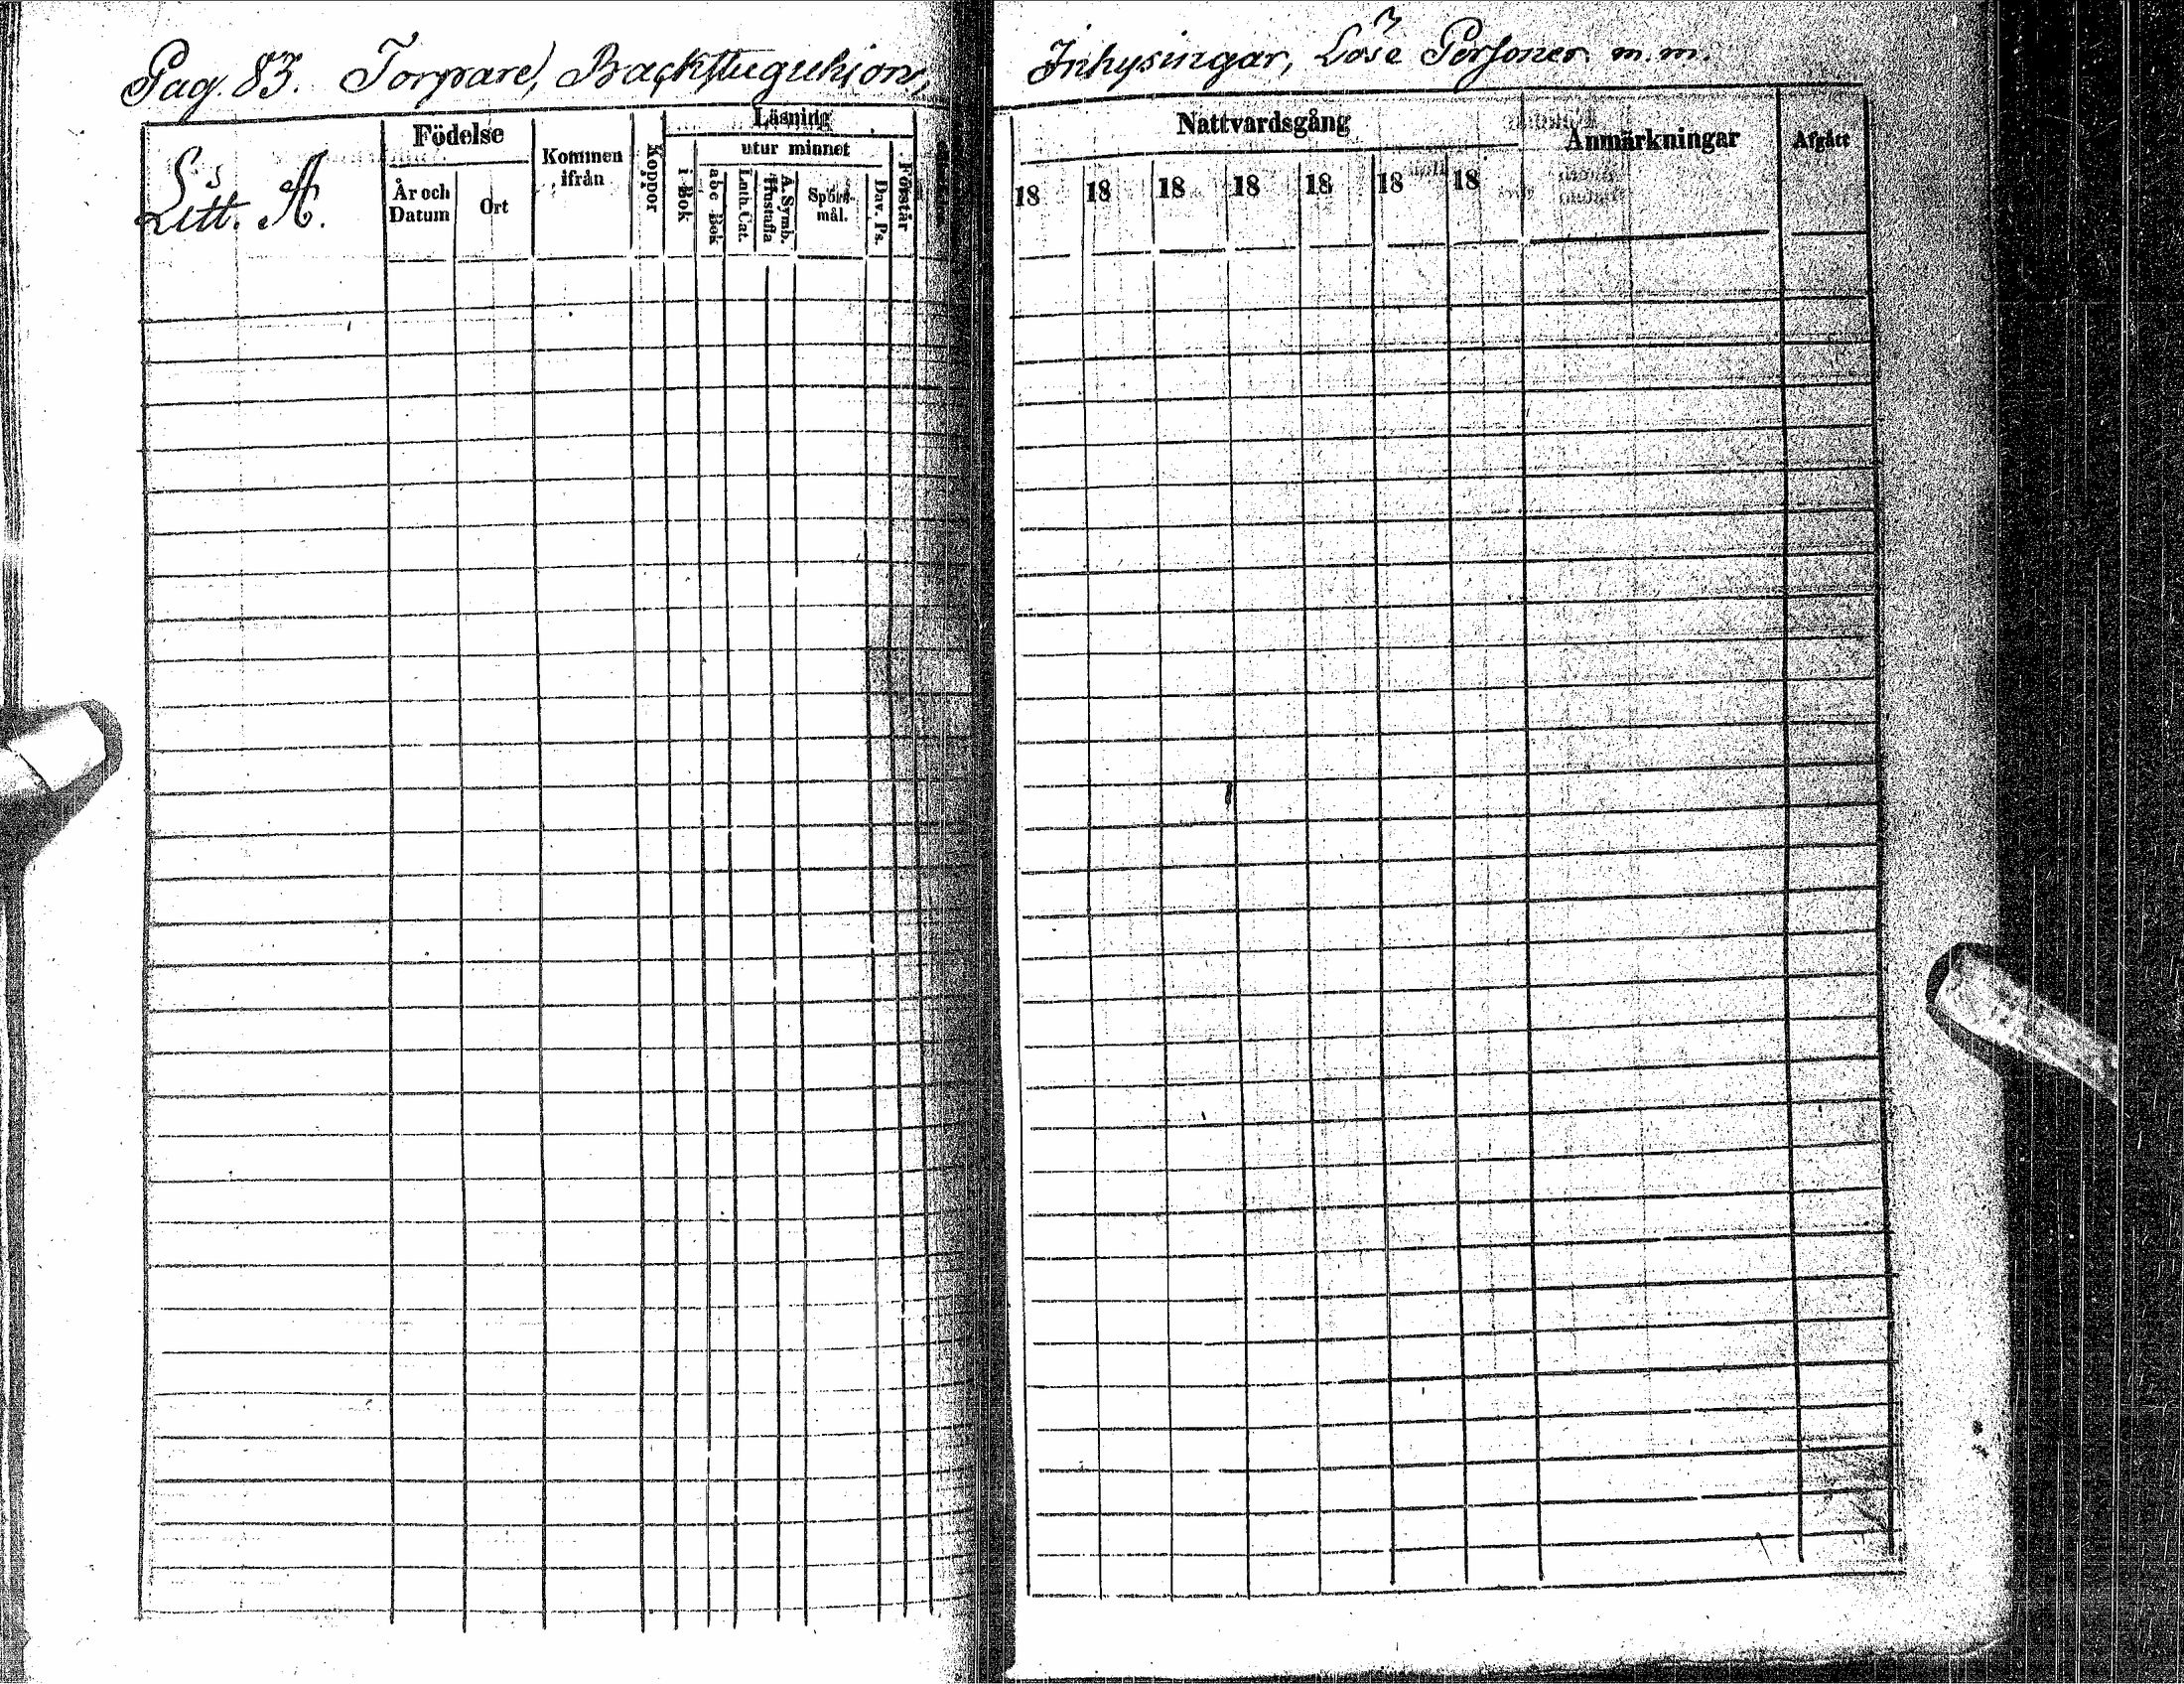 Pag. 83. Torpare, Backstuguhjon,
Litt. A.
Födelse
År och Datum
Ort
Kommen ifrån
Koppor
Läsning
i Bok
utur minnet
abc Bok
Luth. Cat.
Hustafla
A. Symb.
Spörs-mål.
Dav. Ps.
Förstår
Inhysingar, Löse Personer m.m.
Nattvardsgång
18 18 18 18 18 18 18
Anmärkningar
Afgått